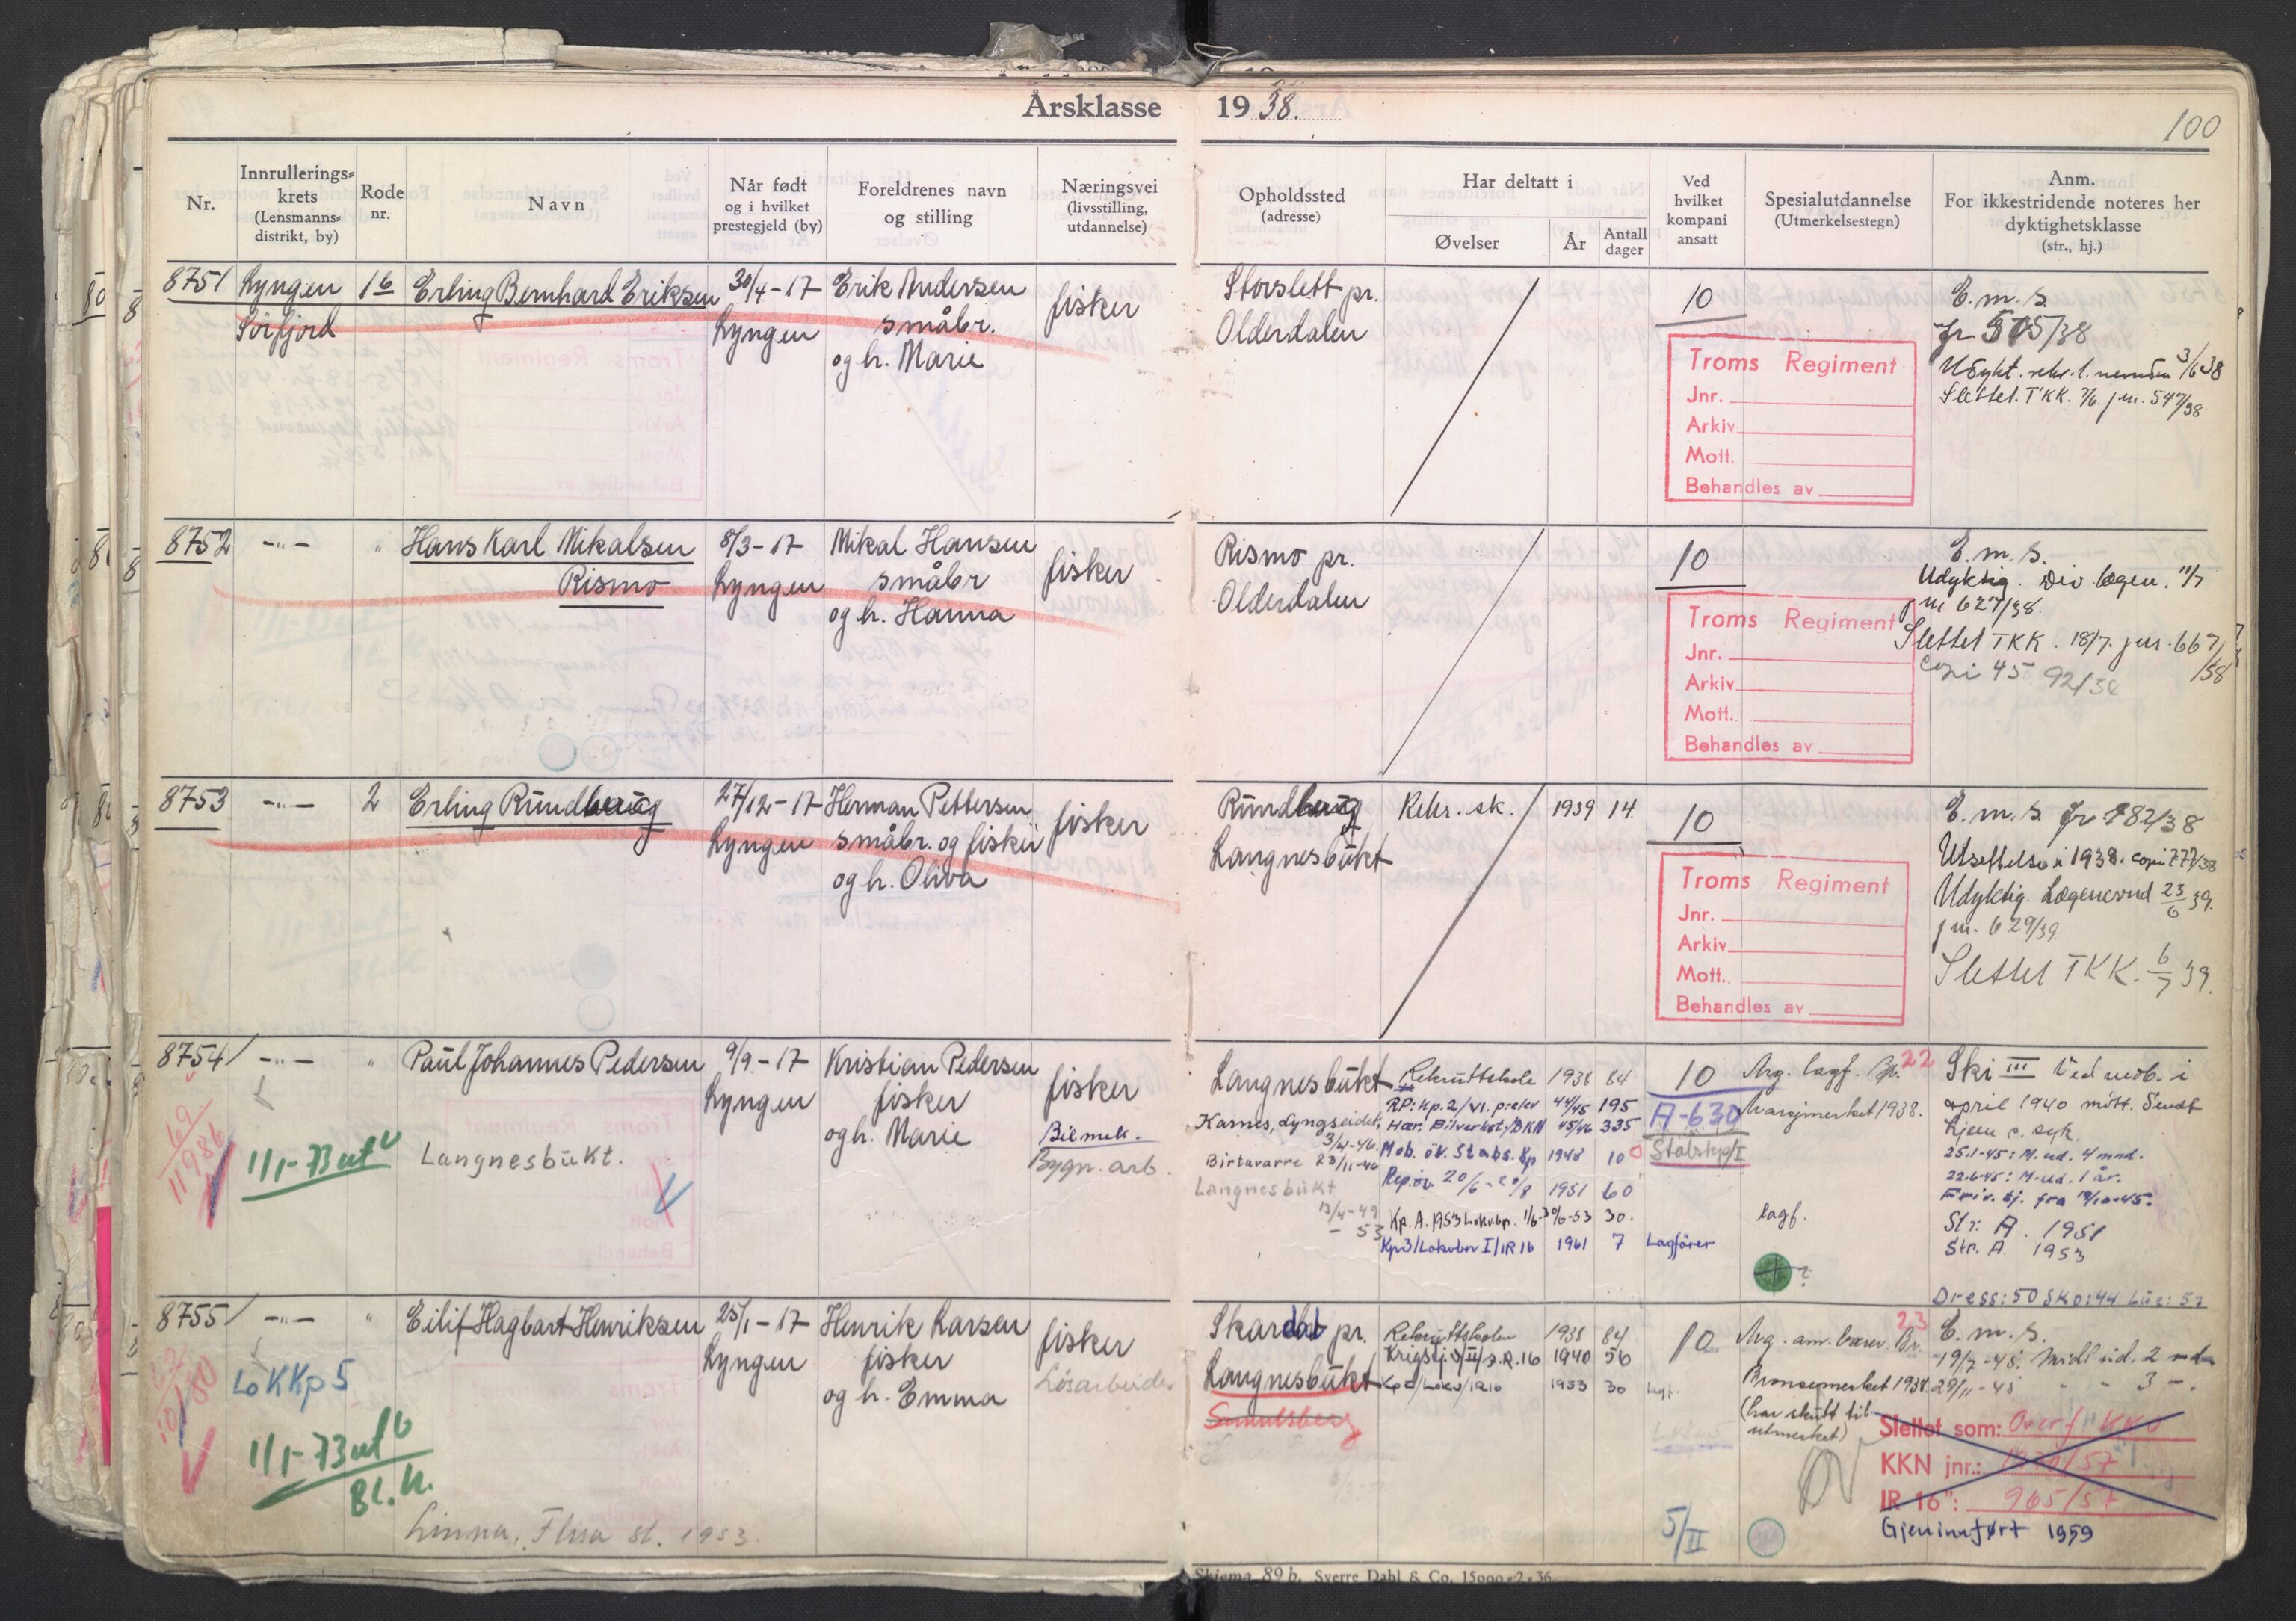 Årsklasse 1938.
100
Nr.
Innrullerings-
krets
(Lensmanns-
distrikt, by)
Rode
nr.
Navn
Når født
og i hvilket
prestegjeld (by)
Foreldrenes navn
og stilling
Næringsvei
(livsstilling,
utdannelse)
Opholdssted
(adresse)
Har deltatt i
Øvelser
År
Antall
dager
Ved
hvilket
kompani
ansatt
Spesialutdannelse
(Utmerkelsestegn)
Anm.
For ikkestridende noteres her
dyktighetsklasse
(str., hj.)
8751 Lyngen 16 Erling Bernhard Eriksen 30/4-17 Erik Andersen fisker
Sörfjord Lyngen småbr.
og h. Marie
Storslett pr.
Olderdalen
10
E. m. s.
Troms Regiment
Jnr.
Arkiv
Mott.
Behandles av
Slettet TKK. 7/6. jnr. 547/38
8752 -"- " Hans Karl Mikalsen 8/3-17 Mikal Hansen fisker
Rismo Lyngen småbr
og h. Hanna
Rismo pr.
Olderdalen
10
E. m. s.
Udyktig. Div. lægen. 11/7
jnr 627/38.
Slettet TKK. 18/7. jnr. 667/38
Copi 45 92/38
Troms Regiment
Jnr.
Arkiv
Mott.
Behandles av
8753 -"- 2 Erling Rundberg 27/12-17 Herman Pettersen fisker
Lyngen småbr. og fisker
og h. Oliva
Rundberg
Langnesbukt
Rekr. sk. 1939 14
10
E. m. s. jr 782/38
Utsettelse i 1938. copi 777/38
Udyktig. Lægenevnd 23/6 39.
jnr. 629/39
Slettet TKK. 6/7 39.
Troms Regiment
Jnr.
Arkiv
Mott.
Behandles av
8754 -"- " Paul Johannes Pedersen 9/9-17 Kristian Pedersen fisker
Lyngen fisker
og h. Marie
Bilmek.
Bygn. arb.
69
11986
1/1-73 ut
Langnesbukt.
Langnesbukt
Karnes, Lyngseidet,
3/4-46.
Birtavarre 23/11-46
Langnesbukt
13/4-49
- 53
Rekruttskole 1938 84
RP: Kp. 2/VI. p:elev 44/45 195
Hær. Bilverkst./DKN 45/46 335
Mob. öv. Stabs. Kp 1948 10
Rep.öv. 20/6-20/8 1951 60
Kp. A. 1953 Lokvbn. 1/6-30/6-53 30.
Kp3/Lokvbn I/IR 16 1961 7 Lagförer
10
A-630
Stabskp/I
Arg. lagf. Gr. 22
Marsjmerket 1938.
lagf.
?
Ski III Ved mob. i
april 1940 mött. Sendt
hjem p. syk.
25.1-45: M. ud. 4 mnd.
22.6-45: M. ud. 1 år.
Friv. tj. fra 19/10-45.
Str: A. 1951
Str. A 1953
Dress: 50 Sko: 44 Lue: 57
8755 -"- " Eilif Hagbart Henriksen 25/1-17 Henrik Larsen fisker
Lyngen fisker
og h. Emma
Lösarbeider
LoKKp 5
1/1-73 ut
Bl. K.
Linna, Flisa st. 1953.
Skardal pr.
Langnesbukt
Rekruttskolen 1938 84
Krigstj. 3/II/I.R.16 1940 56
1953 30 lagf.
10
5/II
Arg. am. bærer. Br. 23
Bronsemerket 1938.
(har skutt til
utmerket)
E. m. s.
19/7-45. Midl ud. 2 mdr
29/11-45 - - 3 -.
Slettet som: Overf. KKO
KKN jnr.:
IR 16": 965/57
Gjeninnført 1959
Skjema 89 b. Sverre Dahl & Co. 15000-2-36